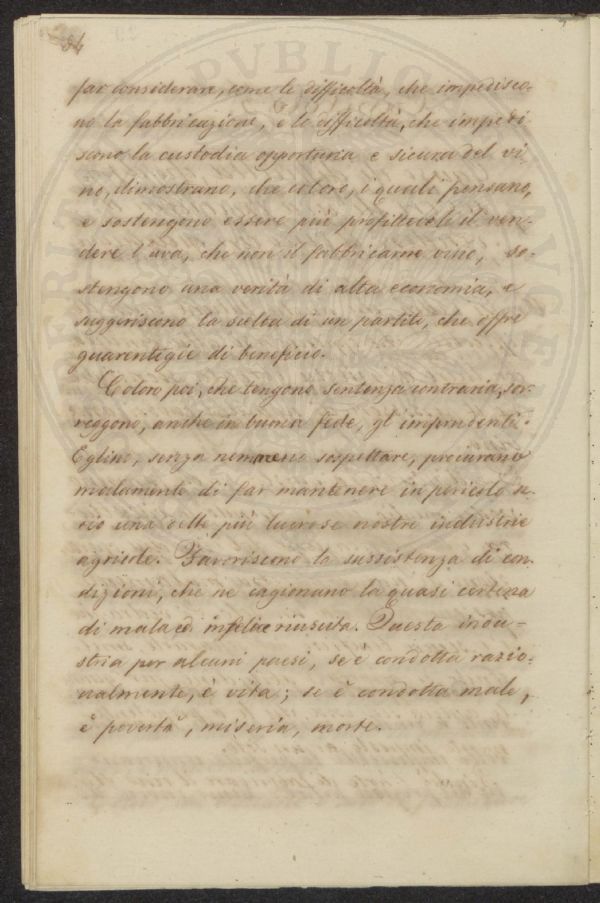 84
far considerare, come le difficoltà, che impedisco-
no la fabbricazione, e le difficoltà, che impedi-
scono la custodia opportuna e sicura del vi-
no, dimostrano, che coloro, i quali pensano,
e sostengono essere più profittevole il ven-
dere l'uva, che non il fabbricarne vino, so-
stengono una verità di alta economia, e
suggeriscono la scelta di un partito, che offre
guarentigie di beneficio.
Coloro poi, che tengono sentenza contraria, sor-
reggono, anche in buona fede, gl'imprudenti.
Eglino, senza nemmeno sospettare, procurano
malamente di far mantenere in pericolo se-
rio una delle più lucrose nostre industrie
agricole. Favoriscono la sussistenza di con-
dizioni, che ne cagionano la quasi certezza
di mala ed infelice riuscita. Questa indu-
stria per alcuni paesi, se è condotta razio-
nalmente, è vita; se è condotta male,
è povertà, miseria, morte.